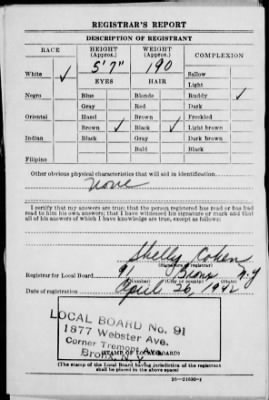 REGISTRAR'S REPORT
DESCRIPTION OF REGISTRANT
RACE HEIGHT (Approx.) WEIGHT (Approx.) COMPLEXION
5' 7" 190
White ✓ EYES HAIR Sallow
Light
Negro Blue Blonde Ruddy ✓
Gray Red Dark
Oriental Hazel Brown Freckled
Brown ✓ Black ✓ Light brown
Indian Black Gray Dark brown
Bald Black
Filipino
Other obvious physical characteristics that will aid in identification
None
I certify that my answers are true; that the person registered has read or has had
read to him his own answers; that I have witnessed his signature or mark and that
all of his answers of which I have knowledge are true, except as follows:
Shelly Cohen
(Signature of registrar)
Registrar for Local Board 91 Bronx N.Y
(Number) (City or county) (State)
Date of registration April 26, 1942
LOCAL BOARD No. 91
1877 Webster Ave.
Corner Tremont Ave.
Bronx, N. Y.
(STAMP OF LOCAL BOARD)
(The stamp of the Local Board having jurisdiction of the registrant
shall be placed in the above space)
16—21630-1